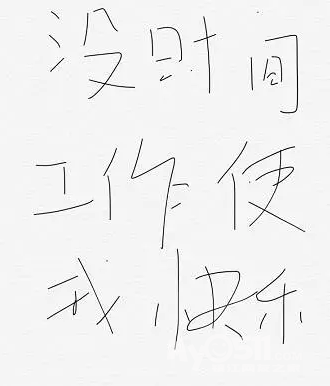 没时间
工作使
我快乐